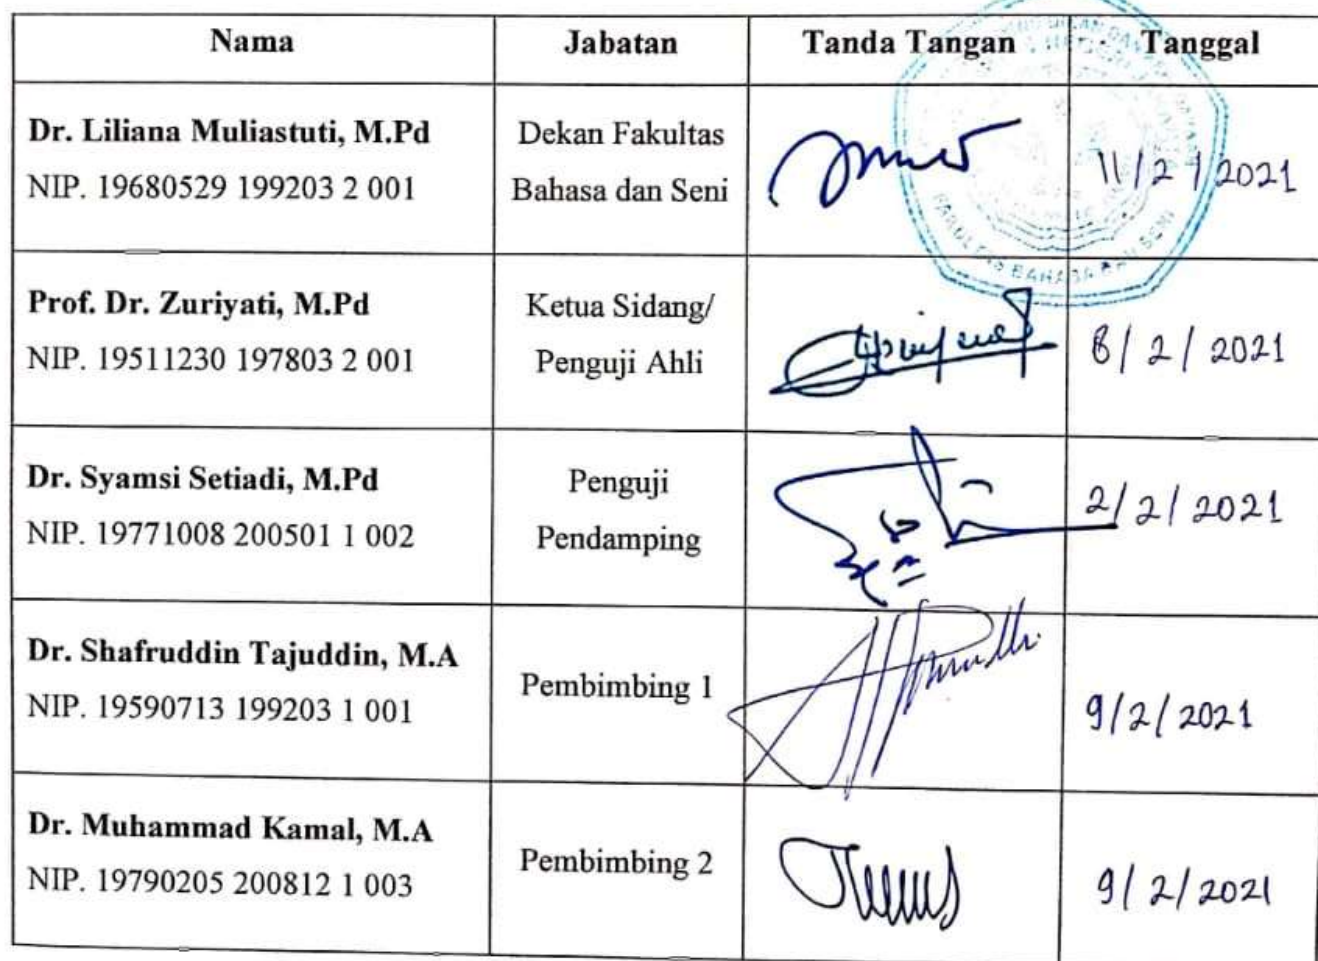 Nama Jabatan Tanda Tangan Tanggal
Dr. Liliana Muliastuti, M.Pd
NIP. 19680529 199203 2 001
Dekan Fakultas
Bahasa dan Seni
11/2/2021
FAKULTAS BAHASA DAN SENI
Prof. Dr. Zuriyati, M.Pd
NIP. 19511230 197803 2 001
Ketua Sidang/
Penguji Ahli
8/2/2021
Dr. Syamsi Setiadi, M.Pd
NIP. 19771008 200501 1 002
Penguji
Pendamping
2/2/2021
Dr. Shafruddin Tajuddin, M.A
NIP. 19590713 199203 1 001
Pembimbing 1
9/2/2021
Dr. Muhammad Kamal, M.A
NIP. 19790205 200812 1 003
Pembimbing 2
9/2/2021